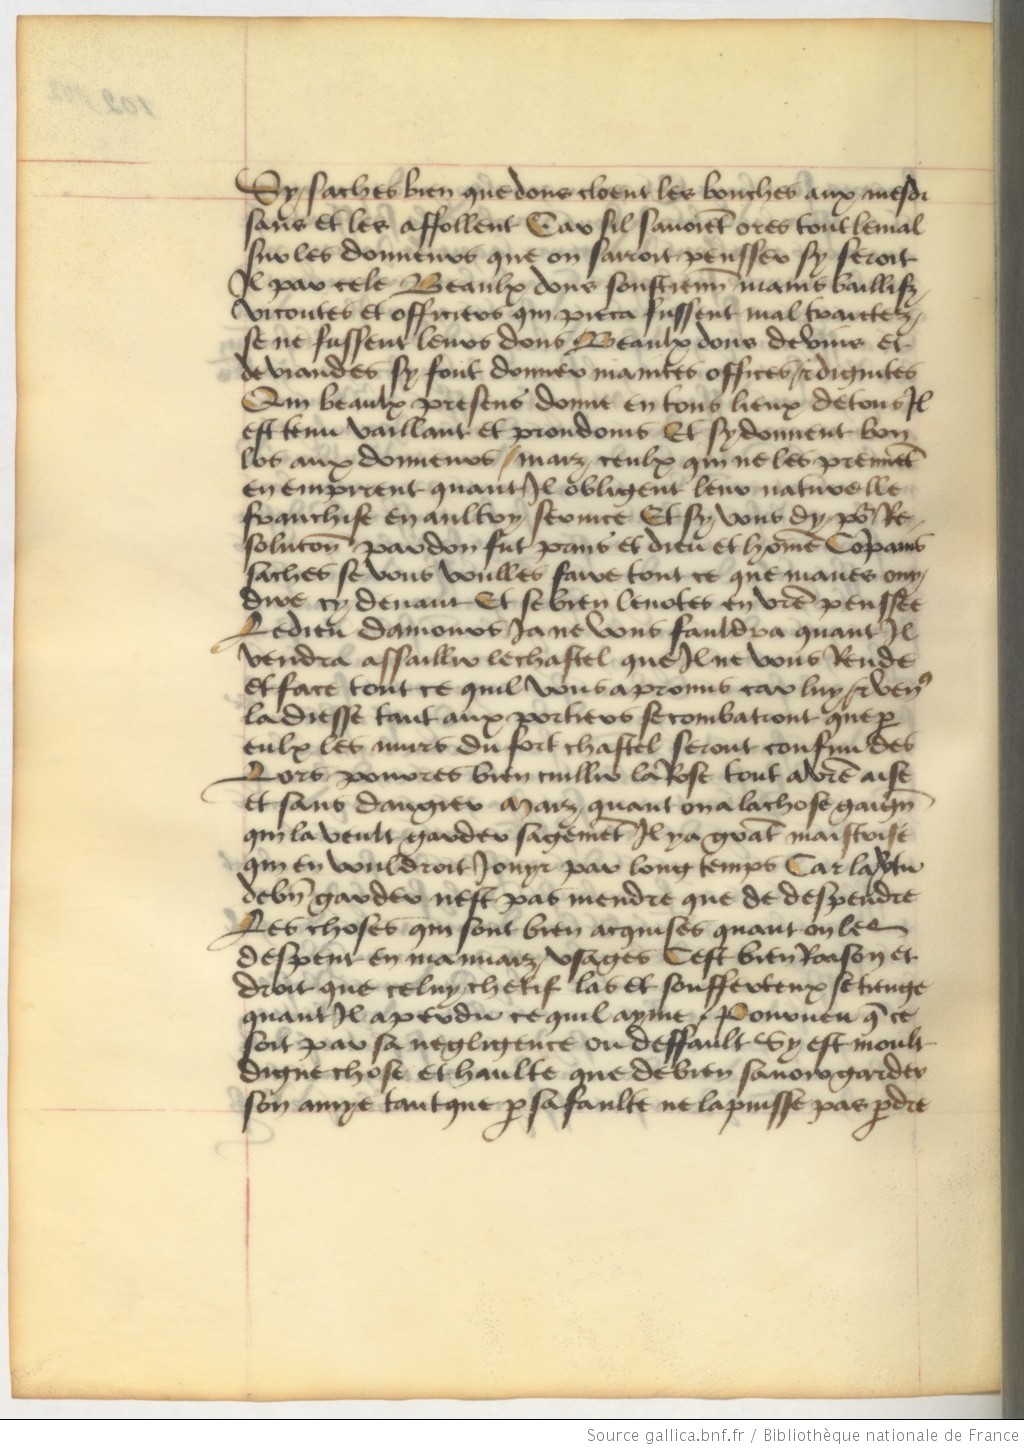 Sy saches bien que dons cloent les bouches aux mesdi
sans et les affollent Car sil savoiēt ores tout le mal
sur les donneurs que on sarroit pensser sy seroit
Il par cele Beaulx dons soustienn̄ mains baillifz
vicontes et officiers qui pieca fussent mal traictez
se ne fussent leurs dons Beaulx dons de vins et
de viandes sy font donner maintes offices / & dignites
Qui beaulx presens donne en tous lieux de tous Il
est tenu vaillant et proudoms Et sy donnent bon
los aux donneurs / maiz ceulx qui ne les prennēt
en emprrent quant Il obligent leur naturelle
franchise en aultry service Et sy vous dy po᷑ Re
solucon̄ pardon fut prans et dieu et hom̄e Co͂pains
saches se vous voulles faire tout ce que maves ouy
dire cy devant Et se bien le notes en vr̄e penssee
Le dieu damours Ja ne vous fauldra quant Il
vendra assaillir le chastel que Il ne vous Rende
et face tout ce quil vous a promis car luy / & ven⁹
la diesse tant aux portiers se combatront que p̱
eulx les murs du fort chastel seront confundes
Lors pourres bien cuillir la Rose tout a vr̄e aise
et sans dangier Maiz quant on a la chose gaign̄
qui la veult garder sagemēt Il y a grāt maistrise
qui en vouldroit Jouyr par long temps Car la v̄tu
de bn̄ garder nest pas mendre que de despendre
Les choses qui sont bien acquises quant on les
despent en mauvaiz usages Cest bien Raison et
droit que celuy chetif las et souffreteux se tienge
quant Il a perdu ce quil ayme / Pourveu q̄ ce
soit par sa negligence ou deffault Sy est moult
digne chose et haulte que de bien savoir garder
son amye tant que p̱ sa faulte ne la puisse pas p̱dre
Source gallica.bnf.fr / Bibliothèque nationale de France